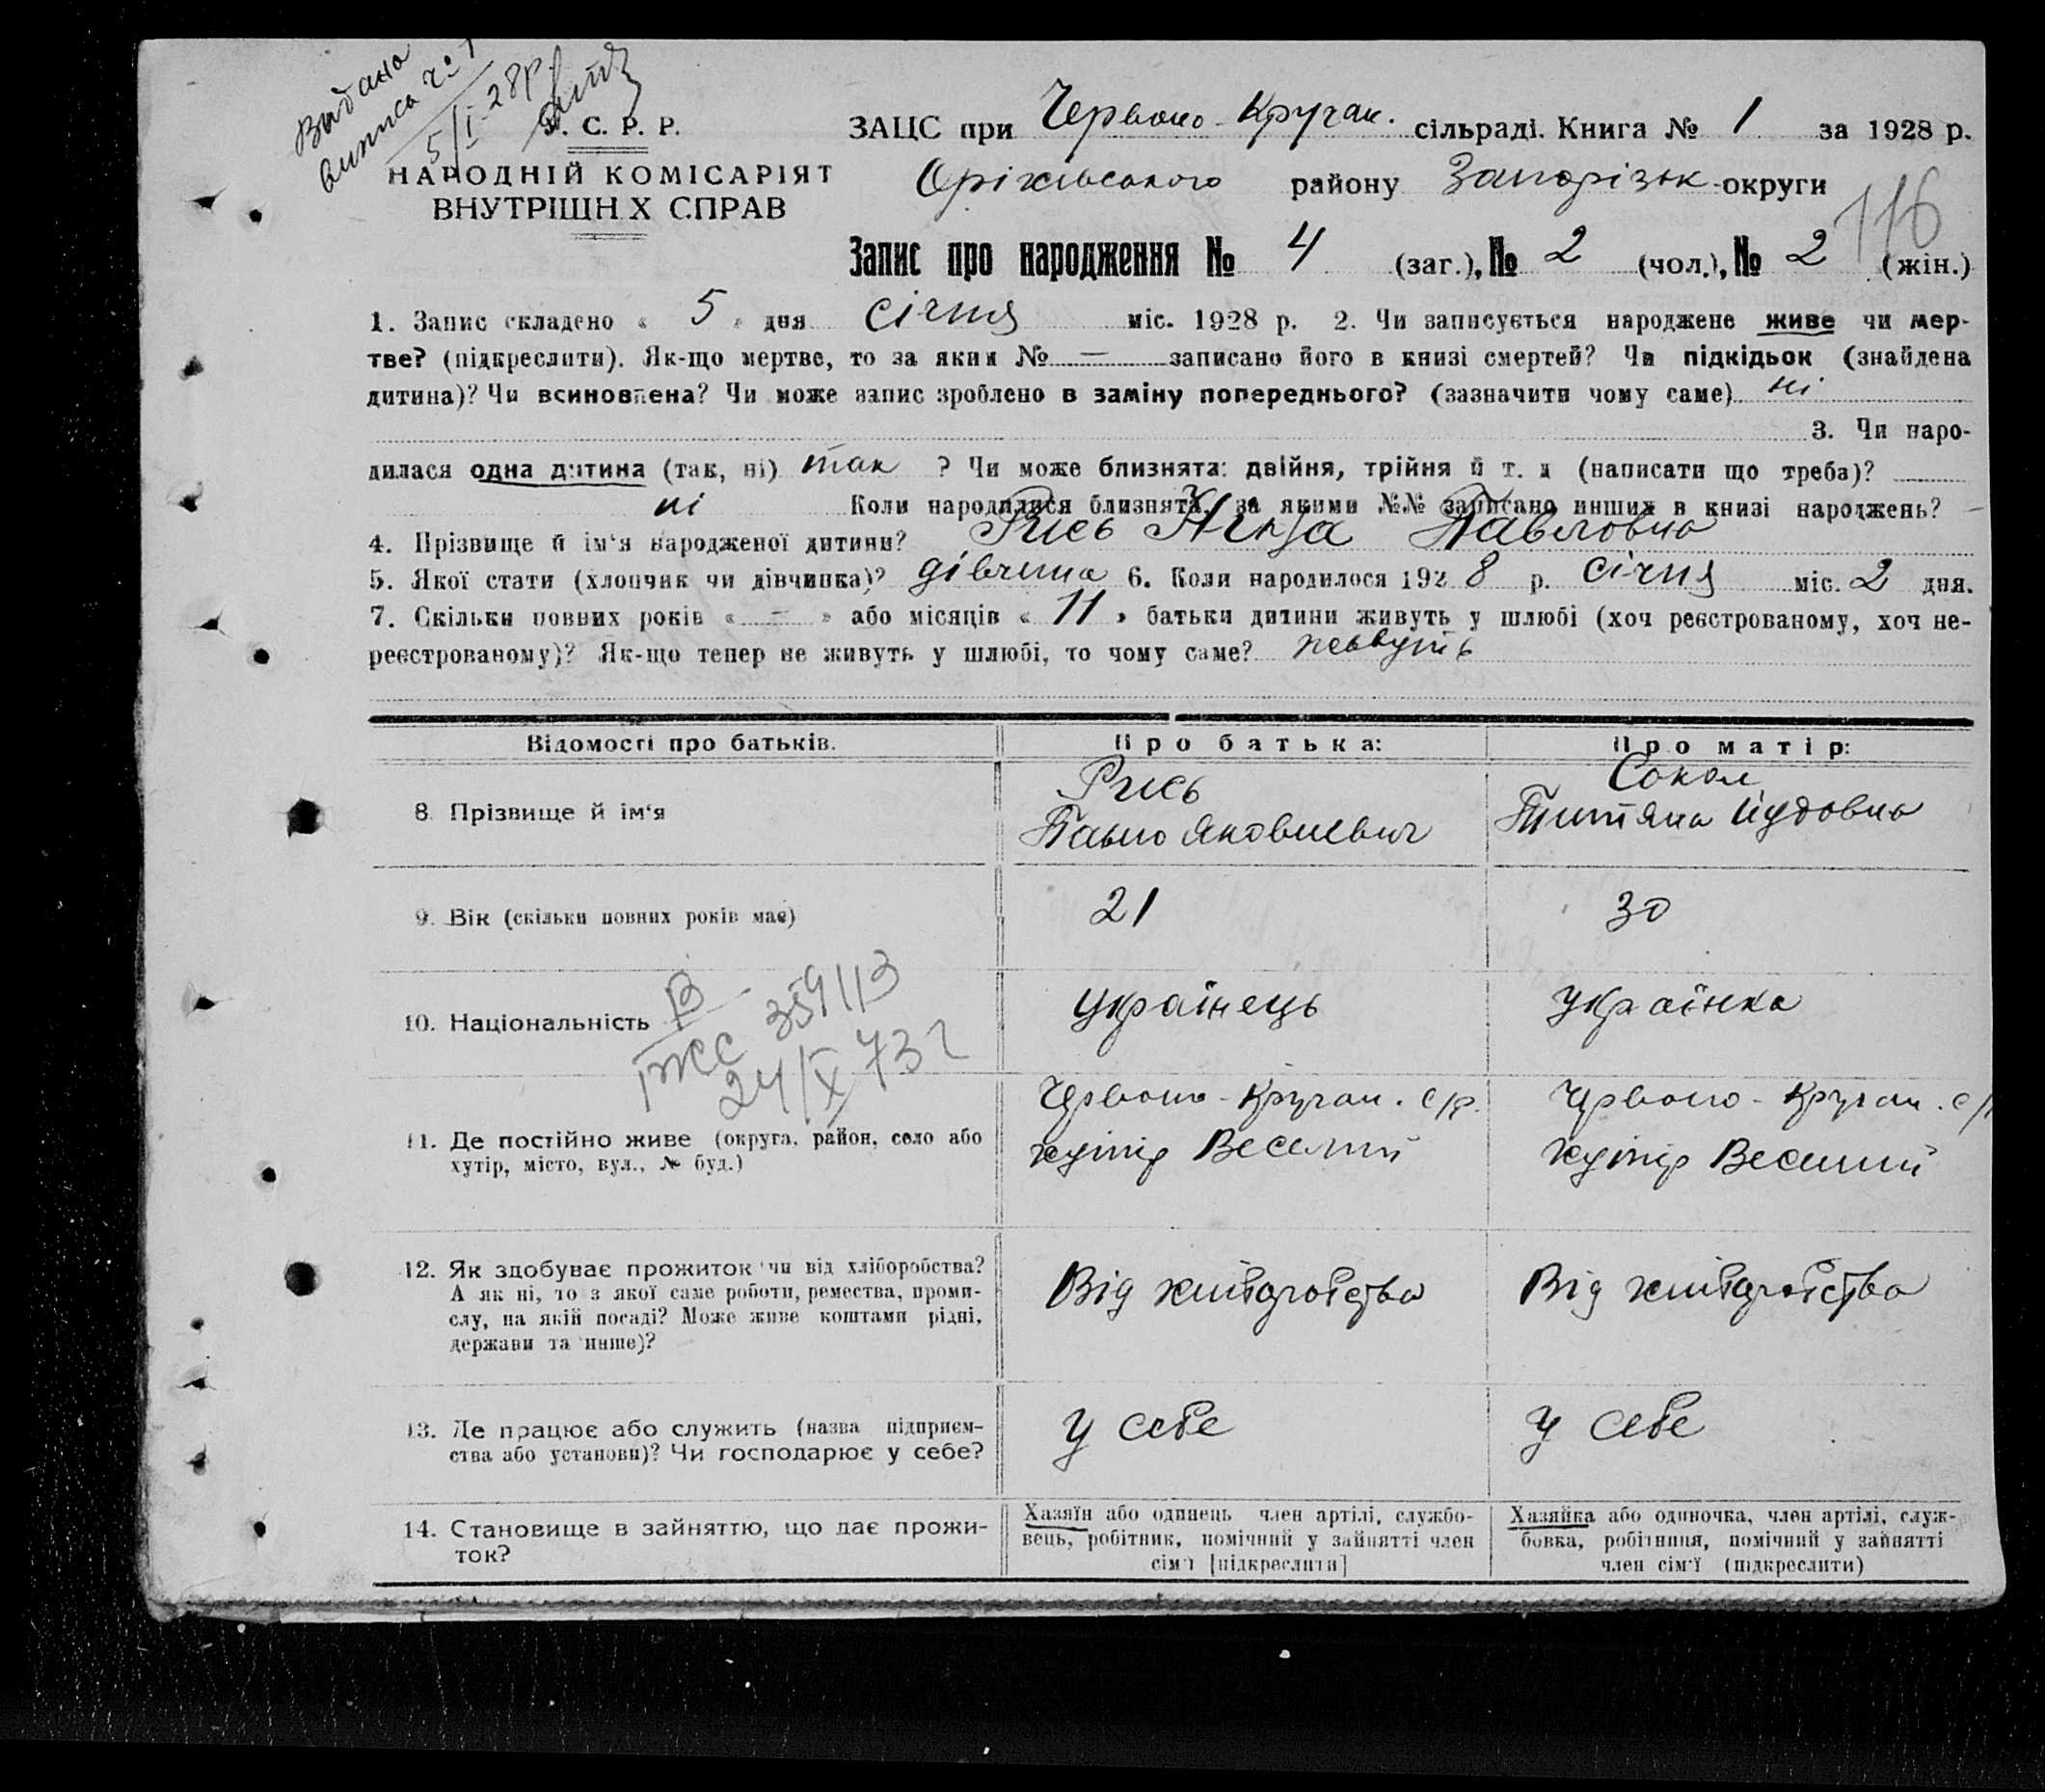 Видано
виписа ч° 1
5/I-28р.
У. С. Р. Р.
НАРОДНІЙ КОМІСАРІЯТ
ВНУТРІШН Х СПРАВ
ЗАЦС при Червоно-Кручан. сільраді. Книга № 1 за 1928 р.
Оріхівського району Запорізьк округи
116
Запис про народження № 4 (заг.), № 2 (чол.), № 2 (жін.)
1. Запис складено « 5 » дня січня міс. 1928 р. 2. Чи записується народжене живе чи мер-
тве? (підкреслити). Як-що мертве, то за яким № — записано його в книзі смертей? Чи підкідьок (знайдена
дитина)? Чи всиновлена? Чи може запис зроблено в заміну попереднього? (зазначити чому саме) ні
3. Чи наро-
дилася одна дитина (так, ні) так ? Чи може близнята: двійня, трійня й т. д (написати що треба)?
ні Коли народилися близнята, за якими №№ записано инших в книзі народжень? —
4. Прізвище й ім'я народженої дитини? Рись Павловна
5. Якої стати (хлопчик чи дівчинка)? дівчина 6. Коли народилося 1928 р. січня міс. 2 дня.
7. Скільки повних років « — » або місяців « 11 » батьки дитини живуть у шлюбі (хоч реєстрованому, хоч не-
реєстрованому)? Як-що тепер не живуть у шлюбі, то чому саме? живуть
Відомості про батьків. Про батька: Про матір:
8. Прізвище й ім'я Рись Сокол
Павло Яковлевич Титяна Іудовна
9. Вік (скільки повних років має) 21 30
10. Національність українець українка
359113
24/X 73г
11. Де постійно живе (округа, район, село або Червоно-Кручан. с/р. Червоно-Кручан. с/р
хутір, місто, вул., № буд.) хутір Веселий хутір Веселий
12. Як здобуває прожиток чи від хліборобства? Від хліборобства Від хліборобства
А як ні, то з якої саме роботи, ремества, проми-
слу, на якій посаді? Може живе коштами рідні,
держави та инше)?
13. Де працює або служить (назва підприєм- У себе У себе
ства або установи)? Чи господарює у себе?
14. Становище в зайняттю, що дає прожи-
ток?
Хазяїн або одинець член артілі, службо-
вець, робітник, помічний у зайнятті член
сім'ї [підкреслити]
Хазяйка або одиночка, член артілі, служ-
бовка, робітниця, помічний у зайнятті
член сім'ї (підкреслити)